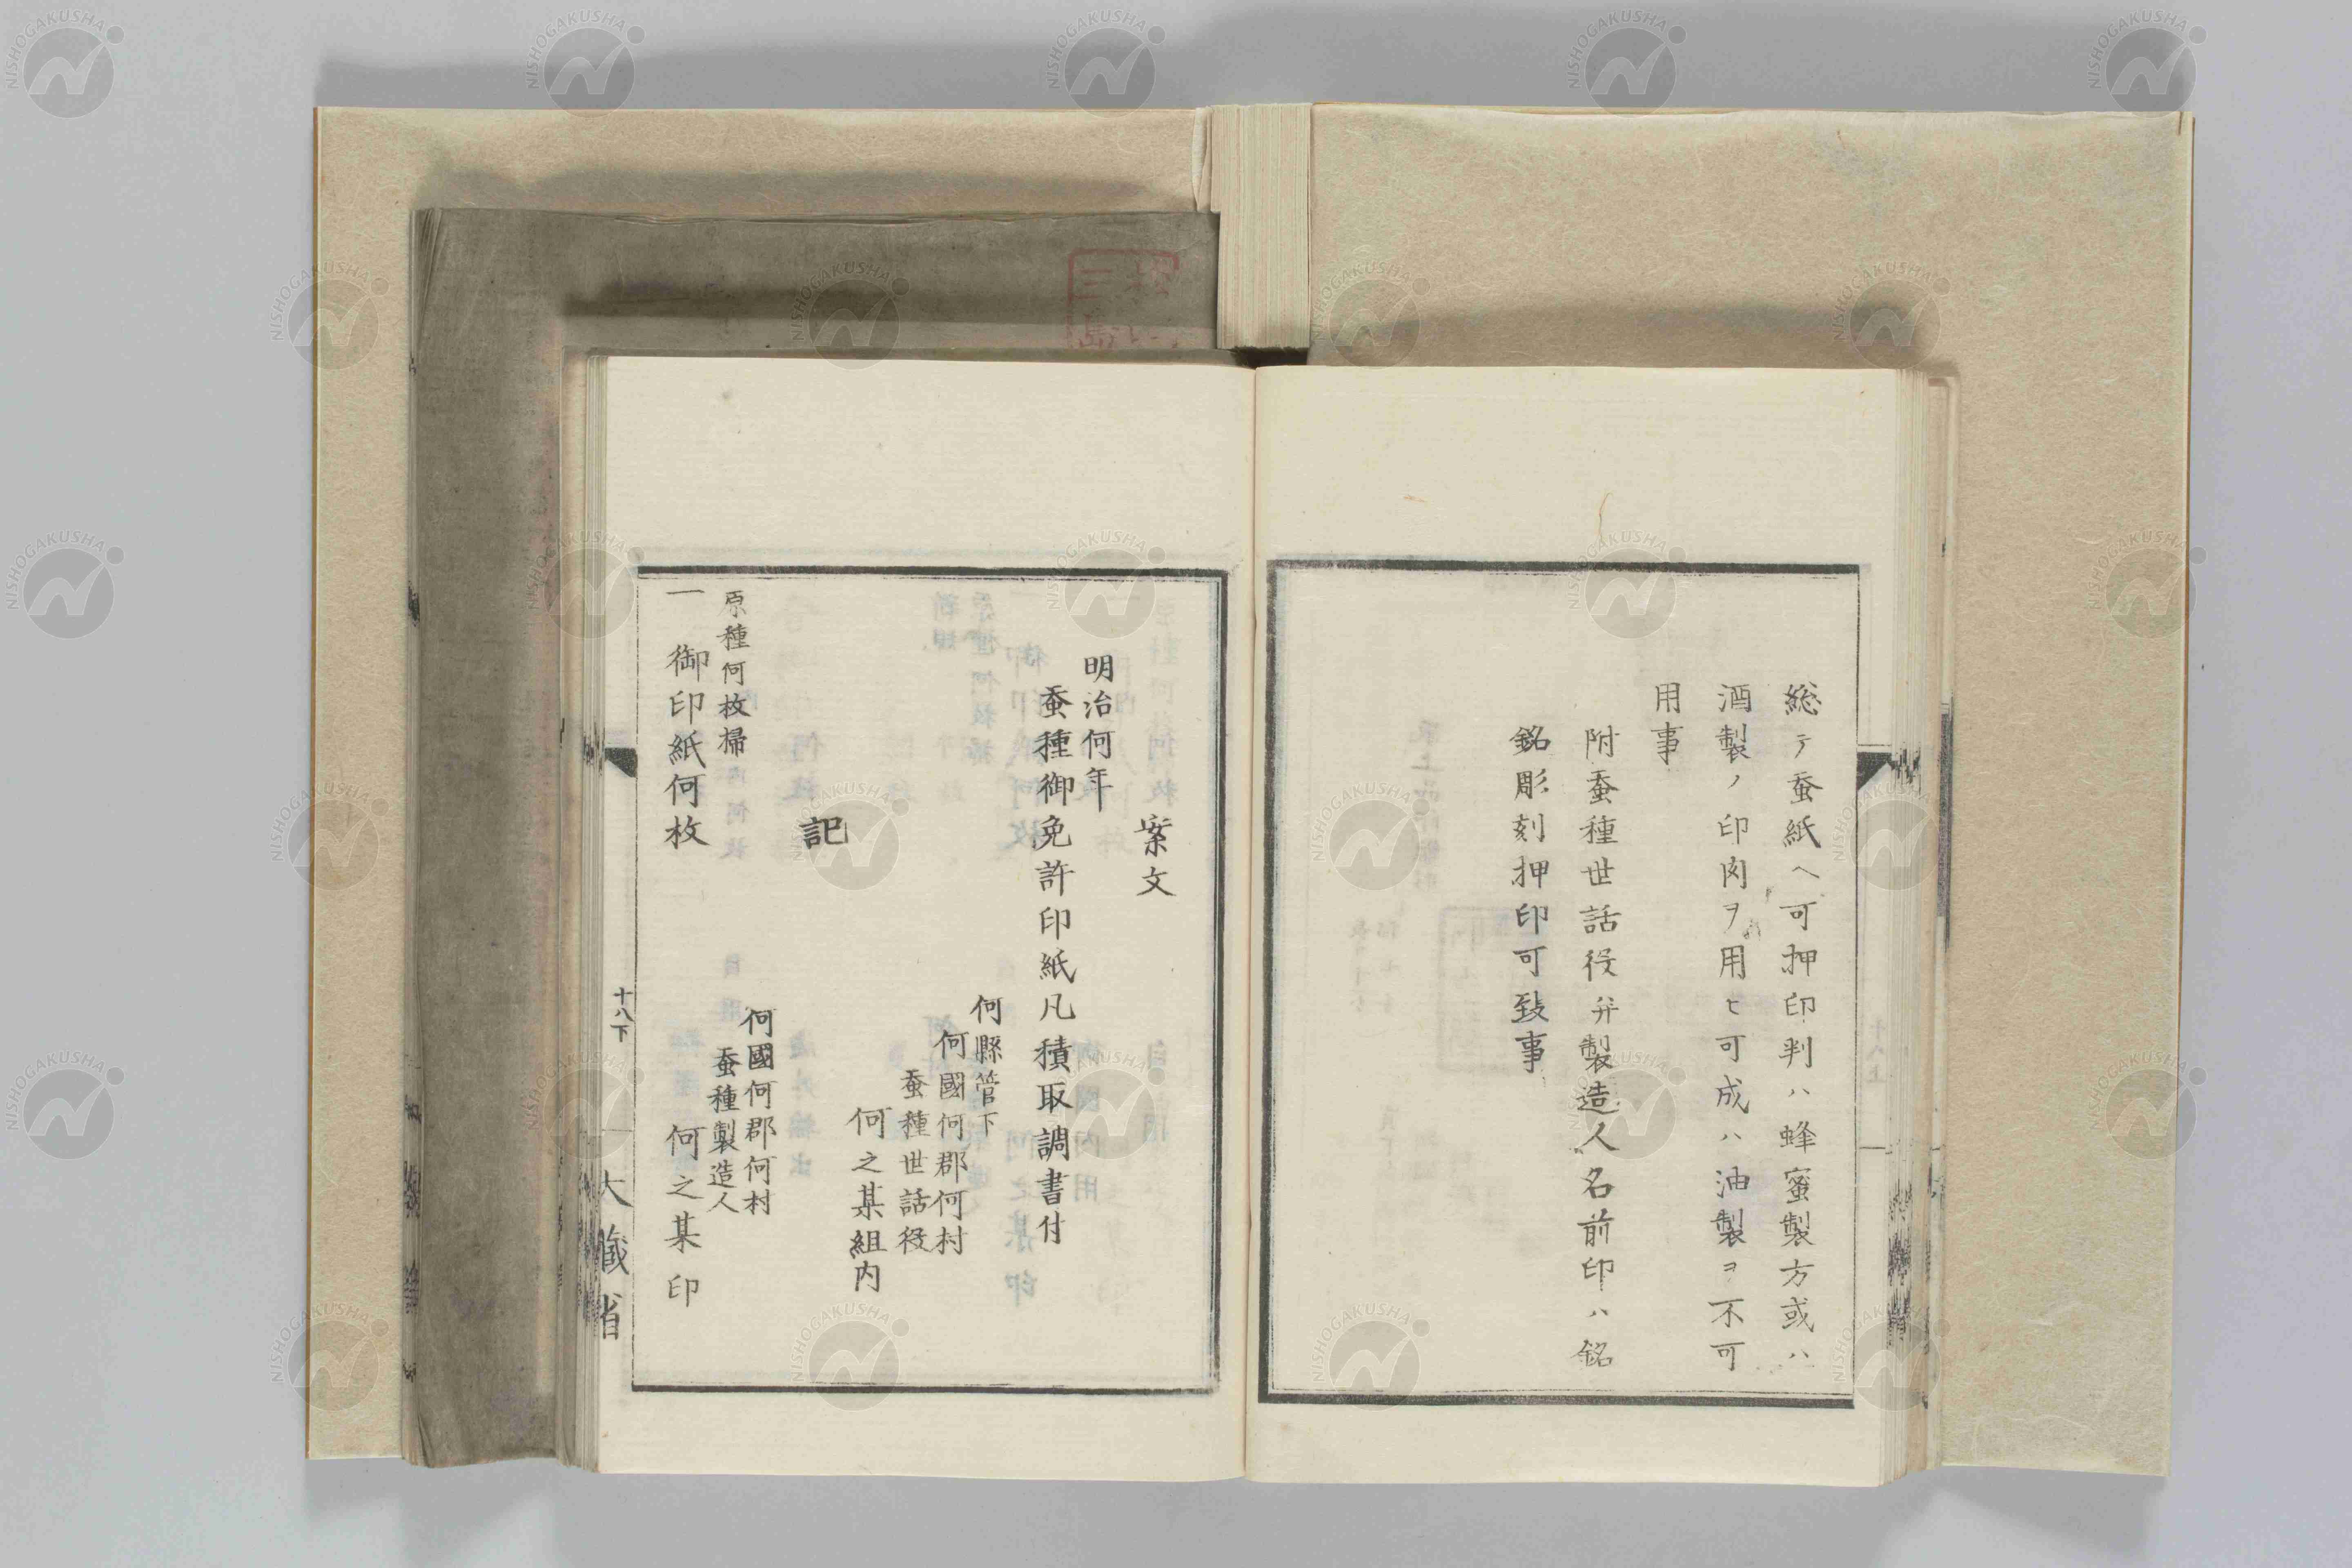 総テ蚕紙ヘ可押印判ハ蜂蜜製方或ハ
酒製ノ印肉ヲ用ヒ可成ハ油製ヲ不可
用事
附蚕種世話役并製造人名前印ハ銘
銘彫刻押印可致事
案文
明治何年
蚕種御免許印紙凡積取調書付
何縣管下
何國何郡何村
蚕種世話役
何之某組内
記
何國何郡何村
蚕種製造人
原種何枚掃
一 御印紙何枚 何之某 印
十八下
大藏省
NISHOGAKUSHA